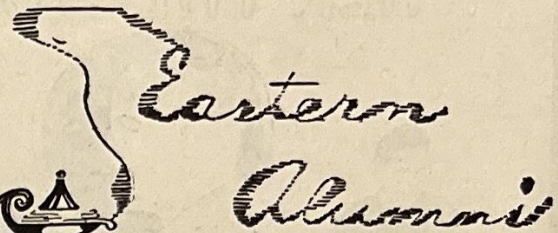 Eastern
Alumni